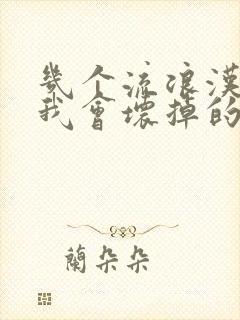 幾个流浪漢
我會壞掉的
蘭朵朵